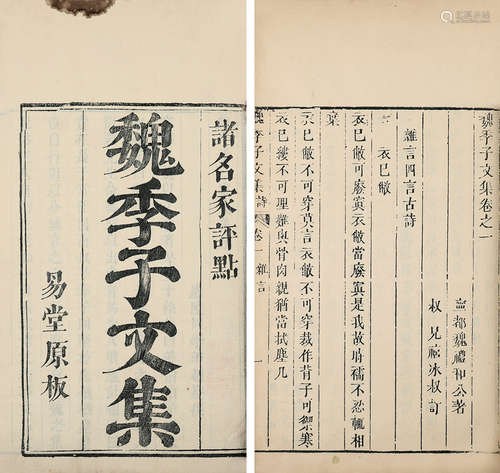 諸名家評點
魏季子文集
易堂原板
魏季子文集卷之一
寧都魏禮和公著
叔兄禧冰叔訂
雜言四言古詩
衣已敝
衣已敝可麼寅衣敝當麼寅是我故時襦不忍輒相
棄
衣已敝不可穿莫言衣敝不可穿裁作背子可禦寒
衣已縷不可理難與骨肉親猶當拭塵几
魏季子文集詩
卷一
雜言
一